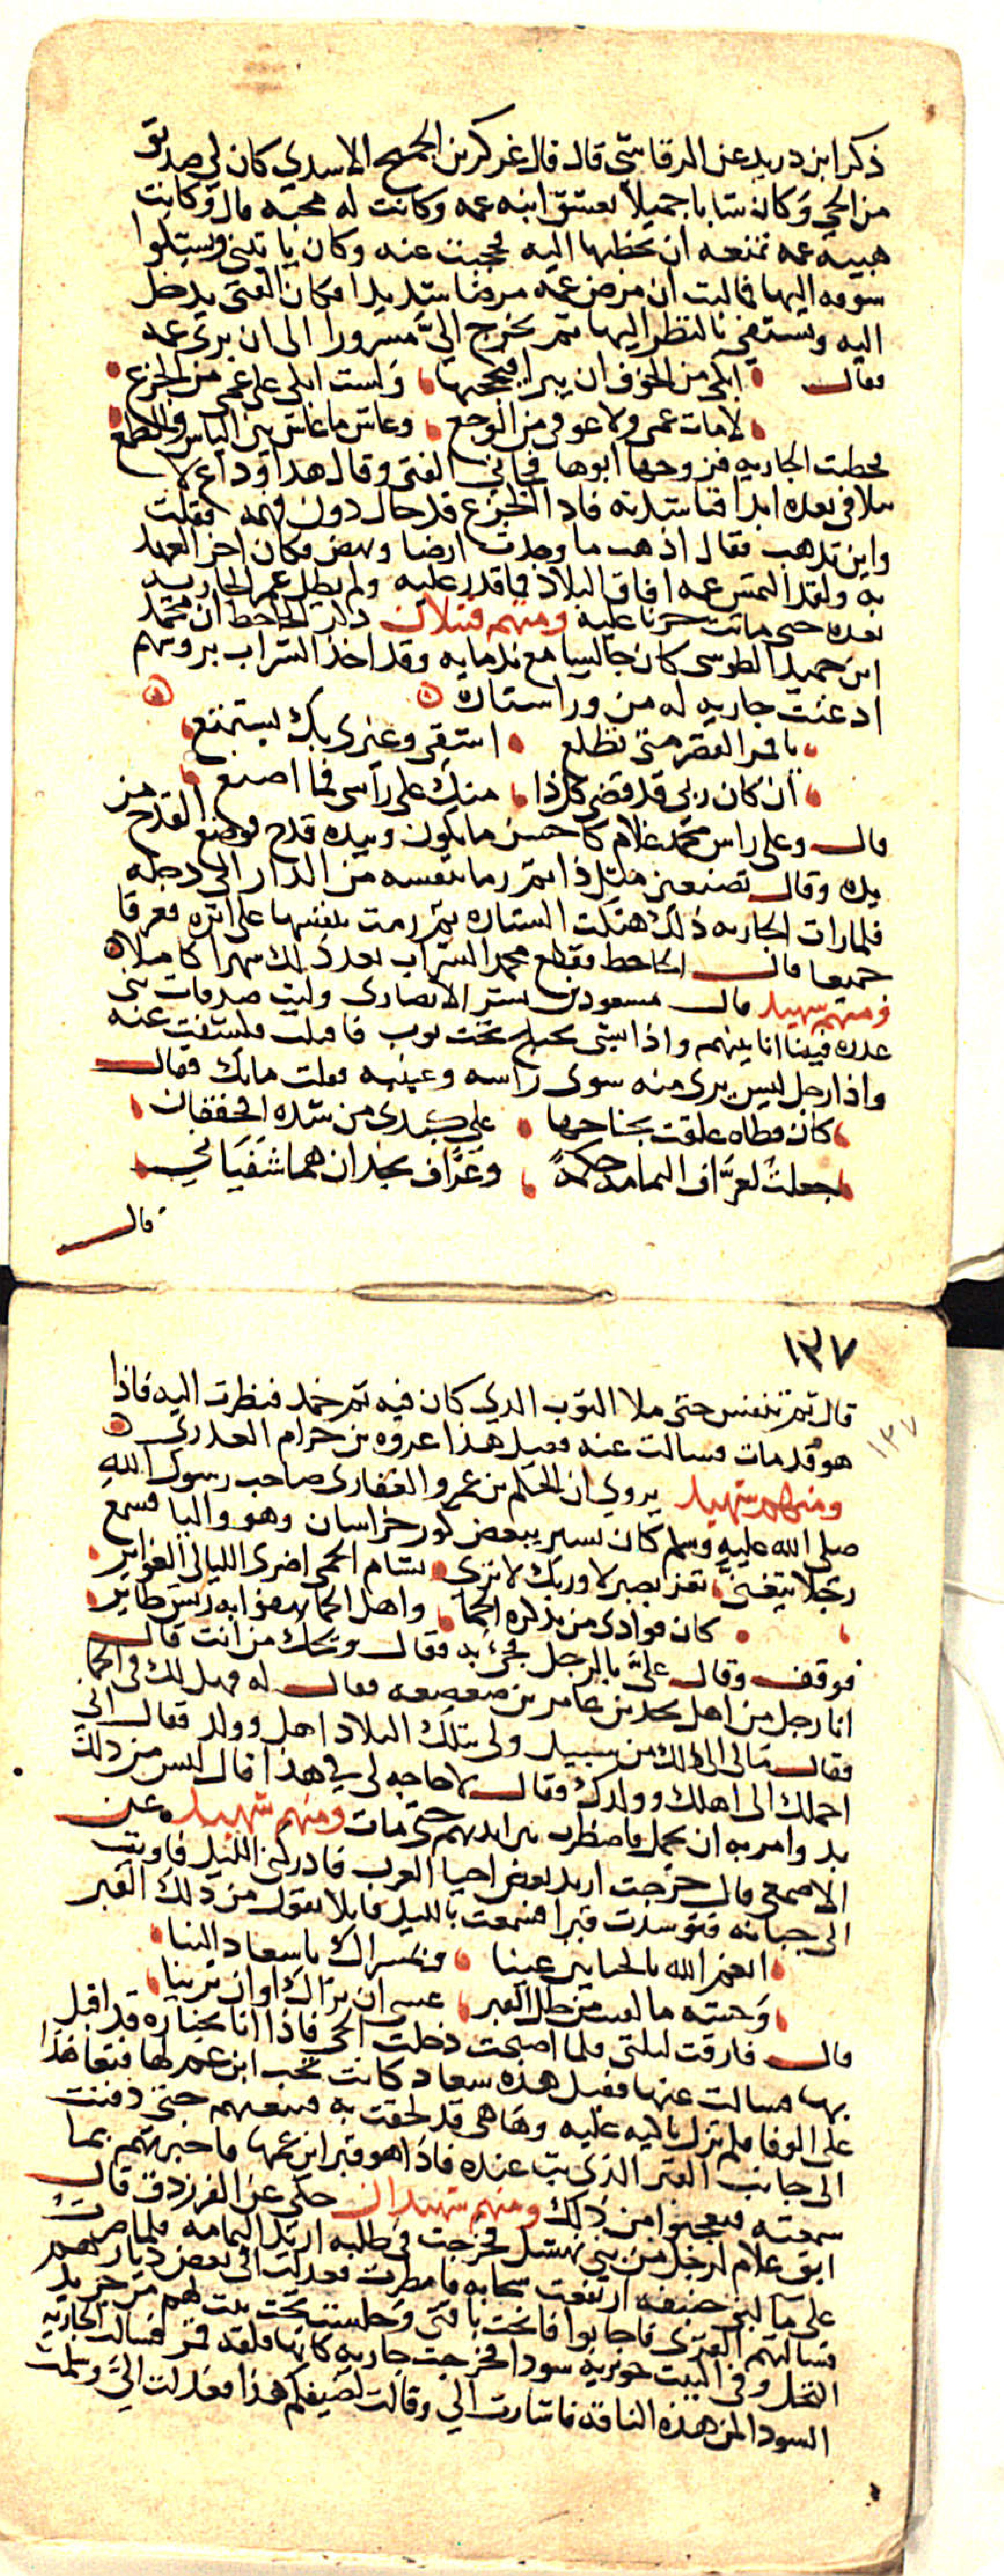 ذكر ابن دريد عن الرقاشي قال قال عركز بن الجميح الاسدي كان لي صديق
من الحي وكان شابا جميلا يعشق ابنه عمه وكانت له محبه قال وكانت
هيبه عمه تمنعه ان يخطبها اليه فحجبت عنه وكان ياتيني ويشكوا
شوقه اليها فمالبث ان مرض عمه مرضا شديدا فكان الفتى يدخل
اليه ويستشفي بالنظر اليها ثم يخرج اليّ مسرورا الى ان برى عمه
فقال • ابكي من الخوف ان يبرا فيحجبها • ولست ابكي على عمي من الجزع •
• لامات عمي ولا عوفي من الوجع • وعاش ما عاش بين الياس والطمع •
فخطبت الجاريه فزوجها ابوها فجاني الفتى وقال هذا وداع لا
تلاقي بعده ابدا فناشدته فاذا الجزع قد حال دون فهمه فقلت
واين تذهب فقال اذهب ما وجدت ارضا ونهض فكان اخر العهد
به ولقد التمس عمه افاق البلاد فما قدر عليه ولم يطل عمر الجاريه
بعده حتى ماتت حزنا عليه ومنهم قتيلان ذكر الجاحظ ان محمد
ابن حميد الطوسي كان جالسا مع ندمايه وقد اخذ الشراب بروسهم
اذ غنت جاريه له من ورا ستاره
• يا قمر القصر متى تطلع • اشقى وغيرى بك يستمتع •
• ان كان ربي قد قضى كل ذا • منك على راسي فما اصنع •
قال وعلى راس محمد غلام كاحسن ما يكون وبيده قدح فوضع القدح من
يده وقال تصنعين مثل ذا ثم رما بنفسه من الدار الى دجله
فلما رات الجاريه ذلك هتكت الستاره ثم رمت بنفسها على اثره فغرقا
جميعا قال الجاحظ فقطع محمد الشراب بعد ذلك شهرا كاملا
ومنهم شهيد قال مسعود بن بشر الانصارى وليت صدقات بنى
عذره فبينا انا بينهم واذا بشي يختلج تحت ثوب فاقبلت فكشفت عنه
واذا رجل ليس يرى منه سوى راسه وعينيه فقلت مابك فقال
• كان قطاه علقت بجناحها • على كبدى من شده الخفقان •
• جعلت لعرّاف اليمامه حكمه • وعرّاف نجد ان هما شفياني •
قال
١٣٧
١٣٧
قال ثم تنفس حتى ملا الثوب الذي كان فيه ثم خمد فنظرت اليه فاذا
هو قد مات فسالت عنه فقيل هذا عروه بن حزام العذري
ومنهم شهيد يروي ان الحكم بن عمرو الغفارى صاحب رسول الله
صلى الله عليه وسلم كان يسير ببعض كور خراسان وهو واليا فسمع
رجلا يتغنىّ • تعز بصبر لا وربك لا ترى • بشام الحمى اخرى الليالي الغوابر •
• كان فوادى من تذكره الحما • واهل الحما يهفوا به ريش طاير •
فوقف وقال عليّ بالرجل فجئ به فقال ويحك من انت قال
انا رجل من اهل نجد بن عامر بن صعصعه فقال له فهل لك في الحما
فقال مالي الى ذلك من سبيل ولي بتلك البلاد اهل وولد فقال اني
احملك الى اهلك وولدك فقال لا حاجه لى في هذا قال ليس من ذلك
بد وامر به ان يحمل فاضطرب بين ايديهم حتى مات ومنهم شهيد عن
الاصمعي قال خرجت اريد بعض احيا العرب فادركني الليل فاويت
الى جبانه فتوسدت قبرا فسمعت بالليل قايلا يقول من ذلك القبر
• انعم الله بالخيالين عينا • وبمسراك يا سعاد الينا •
• وحشه ما لقيت من طل القبر • عسى ان نراك او ان ترينا •
قال فارقت ليلتي فلما اصبحت دخلت الحي فاذا انا بجنازه قد اقبل
بها فسالت عنها فقيل هذه سعاد كانت تحب ابن عم لها فتعاهدا
على الوفا فلم تزل باكيه عليه وها هى قد لحقت به فتبعتهم حتى دفنت
الى جانب القبر الذى بت عنده فاذا هو قبر ابن عمها فاخبرتهم بما
سمعته فتعجبوا من ذلك ومنهم شهيدان حكى عن الفرزدق قال
ابق غلام لرجل من بني نهشل فخرجت في طلبه اريد اليمامه فلما صرت
على ما لبني حنيفه ارتفعت سحابه فامطرت فعدلت الى بعض ديارهم
فسالتهم القرى فاجابوا فانخت ناقتي وجلست تحت بيت لهم من جريد
النخل وفي البيت جويريه سودا فخرجت جاريه كانها فلقه قمر فسالت الجاريه
السودا لمن هذه الناقه فاشارت الي وقالت لضيفكم هذا فعدلت اليّ وسلمت